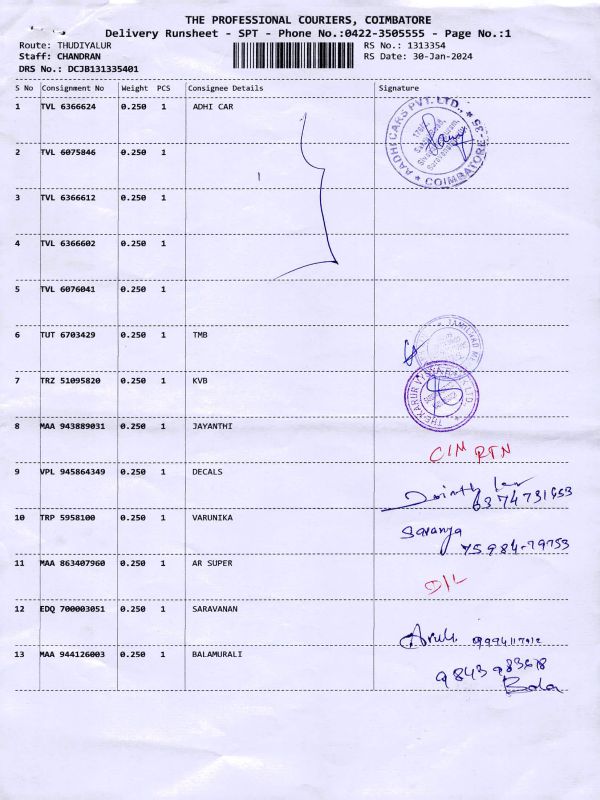 THE PROFESSIONAL COURIERS, COIMBATORE
Delivery Runsheet - SPT - Phone No.:0422-3505555 - Page No.:1
Route: THUDIYALUR RS No.: 1313354
Staff: CHANDRAN RS Date: 30-Jan-2024
DRS No.: DCJB131335401
S No Consignment No Weight PCS Consignee Details Signature
1 TVL 6366624 0.250 1 ADHI CAR
AADHI CARS PVT. LTD.,
COIMBATORE
2 TVL 6075846 0.250 1
3 TVL 6366612 0.250 1
4 TVL 6366602 0.250 1
5 TVL 6076041 0.250 1
6 TUT 6703429 0.250 1 TMB
TAMILNAD
7 TRZ 51095820 0.250 1 KVB
THE KARUR VYSYA BANK LTD.
8 MAA 943889031 0.250 1 JAYANTHI
CIN RTN
9 VPL 945864349 0.250 1 DECALS
10 TRP 5958100 0.250 1 VARUNIKA
Saranya
75984-79753
11 MAA 863407960 0.250 1 AR SUPER
D/L
12 EDQ 700003051 0.250 1 SARAVANAN
13 MAA 944126003 0.250 1 BALAMURALI
Bala